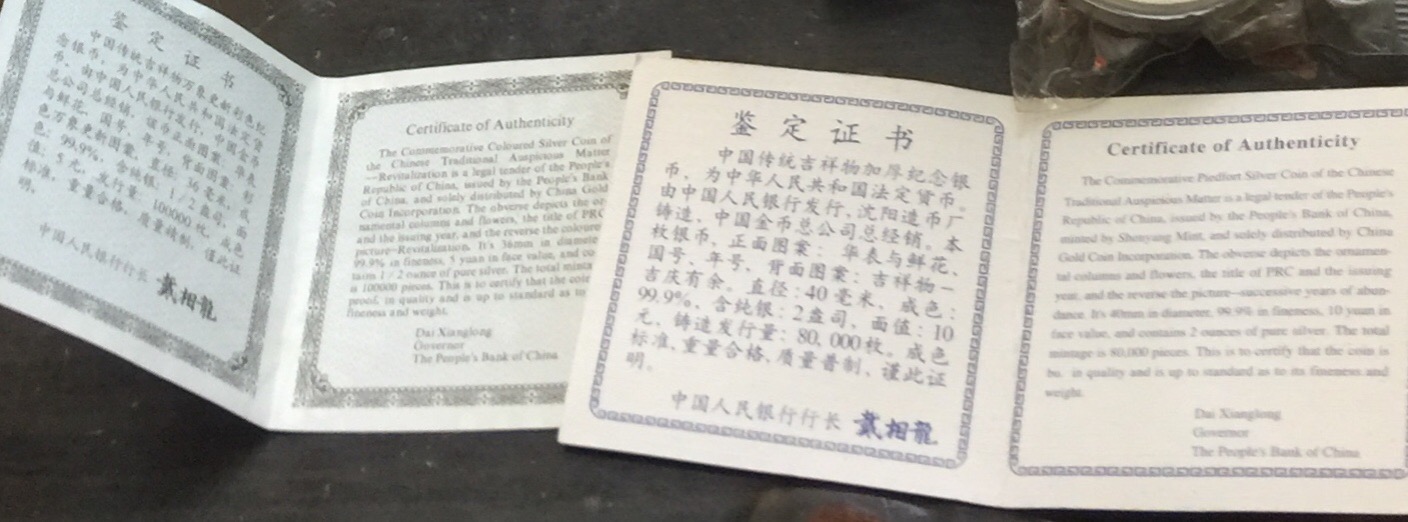 鉴定证书
中国传统吉祥物万象更新彩色纪
念银币，为中华人民共和国法定货
币。由中国人民银行发行，中国金币
总公司总经销。该币正面图案：华表
与鲜花、国号、年号，背面图案：彩
色万象更新图案。直径：36毫米，成
色：99.9%，含纯银：1/2盎司，面
值：5元，发行量：100000枚。成色
标准，重量合格，质量精制，谨此证
明。
中国人民银行行长 戴相龙
Certificate of Authenticity
The Commemorative Coloured Silver Coin of
the Chinese Traditional Auspicious Matter
—Revitalization is a legal tender of the People's
Republic of China, issued by the People's Bank
of China, and solely distributed by China Gold
Coin Incorporation. The obverse depicts the or-
namental columns and flowers, the title of PRC
and the issuing year, and the reverse the coloured
picture—Revitalization. It's 36mm in diamete
99.9% in fineness, 5 yuan in face value, and co
tains 1/2 ounce of pure silver. The total minta
is 100000 pieces. This is to certify that the coin
proof, in quality and is up to standard as to
fineness and weight.
Dai Xianglong
Governor
The People's Bank of China
鉴定证书
中国传统吉祥物加厚纪念银
币，为中华人民共和国法定货币。
由中国人民银行发行、沈阳造币厂
铸造、中国金币总公司总经销。本
枚银币，正面图案：华表与鲜花、
国号、年号，背面图案：吉祥物—
吉庆有余。直径：40毫米、成色：
99.9%、含纯银：2盎司，面值：10
元、铸造发行量：80,000枚。成色
标准、重量合格、质量普制、谨此证
明。
中国人民银行行长 戴相龍
Certificate of Authenticity
The Commemorative Piedfort Silver Coin of the Chinese
Traditional Auspicious Matter is a legal tender of the People's
Republic of China, issued by the People's Bank of China,
minted by Shenyang Mint, and solely distributed by China
Gold Coin Incorporation. The obverse depicts the ornamen-
tal columns and flowers, the title of PRC and the issuing
year, and the reverse the picture—successive years of abun-
dance. It's 40mm in diameter, 99.9% in fineness, 10 yuan in
face value, and contains 2 ounces of pure silver. The total
mintage is 80,000 pieces. This is to certify that the coin is
bu. in quality and is up to standard as to its fineness and
weight.
Dai Xianglong
Governor
The People's Bank of China